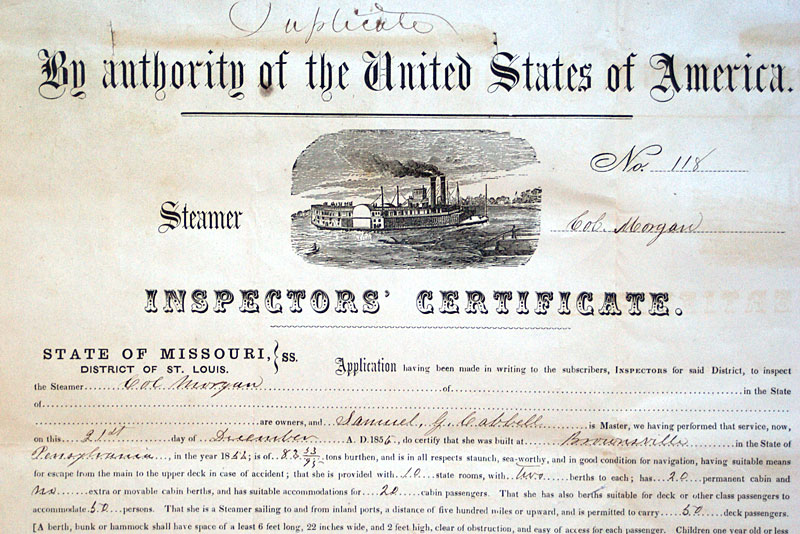 Duplicate
By authority of the United States of America.
No. 118
Steamer Col. Morgan
INSPECTORS' CERTIFICATE.
STATE OF MISSOURI, } ss. Application having been made in writing to the subscribers, INSPECTORS for said District, to inspect
DISTRICT OF ST. LOUIS.
the Steamer Col Morgan of in the State
of
are owners, and Samuel G. Cabbell is Master, we having performed that service, now,
on this 21st day of December A. D. 1855, do certify that she was built at Brownsville in the State of
Pennsylvania, in the year 1855; is of 82 53/95 tons burthen, and is in all respects staunch, sea-worthy, and in good condition for navigation, having suitable means
for escape from the main to the upper deck in case of accident; that she is provided with 10 state rooms, with two berths to each; has 20 permanent cabin and
no extra or movable cabin berths, and has suitable accommodations for 20 cabin passengers. That she has also berths suitable for deck or other class passengers to
accommodate 50 persons. That she is a Steamer sailing to and from inland ports, a distance of five hundred miles or upward, and is permitted to carry 50 deck passengers.
[A berth, bunk or hammock shall have space of a least 6 feet long, 22 inches wide, and 2 feet high, clear of obstruction, and easy of access for each passenger. Children one year old or less